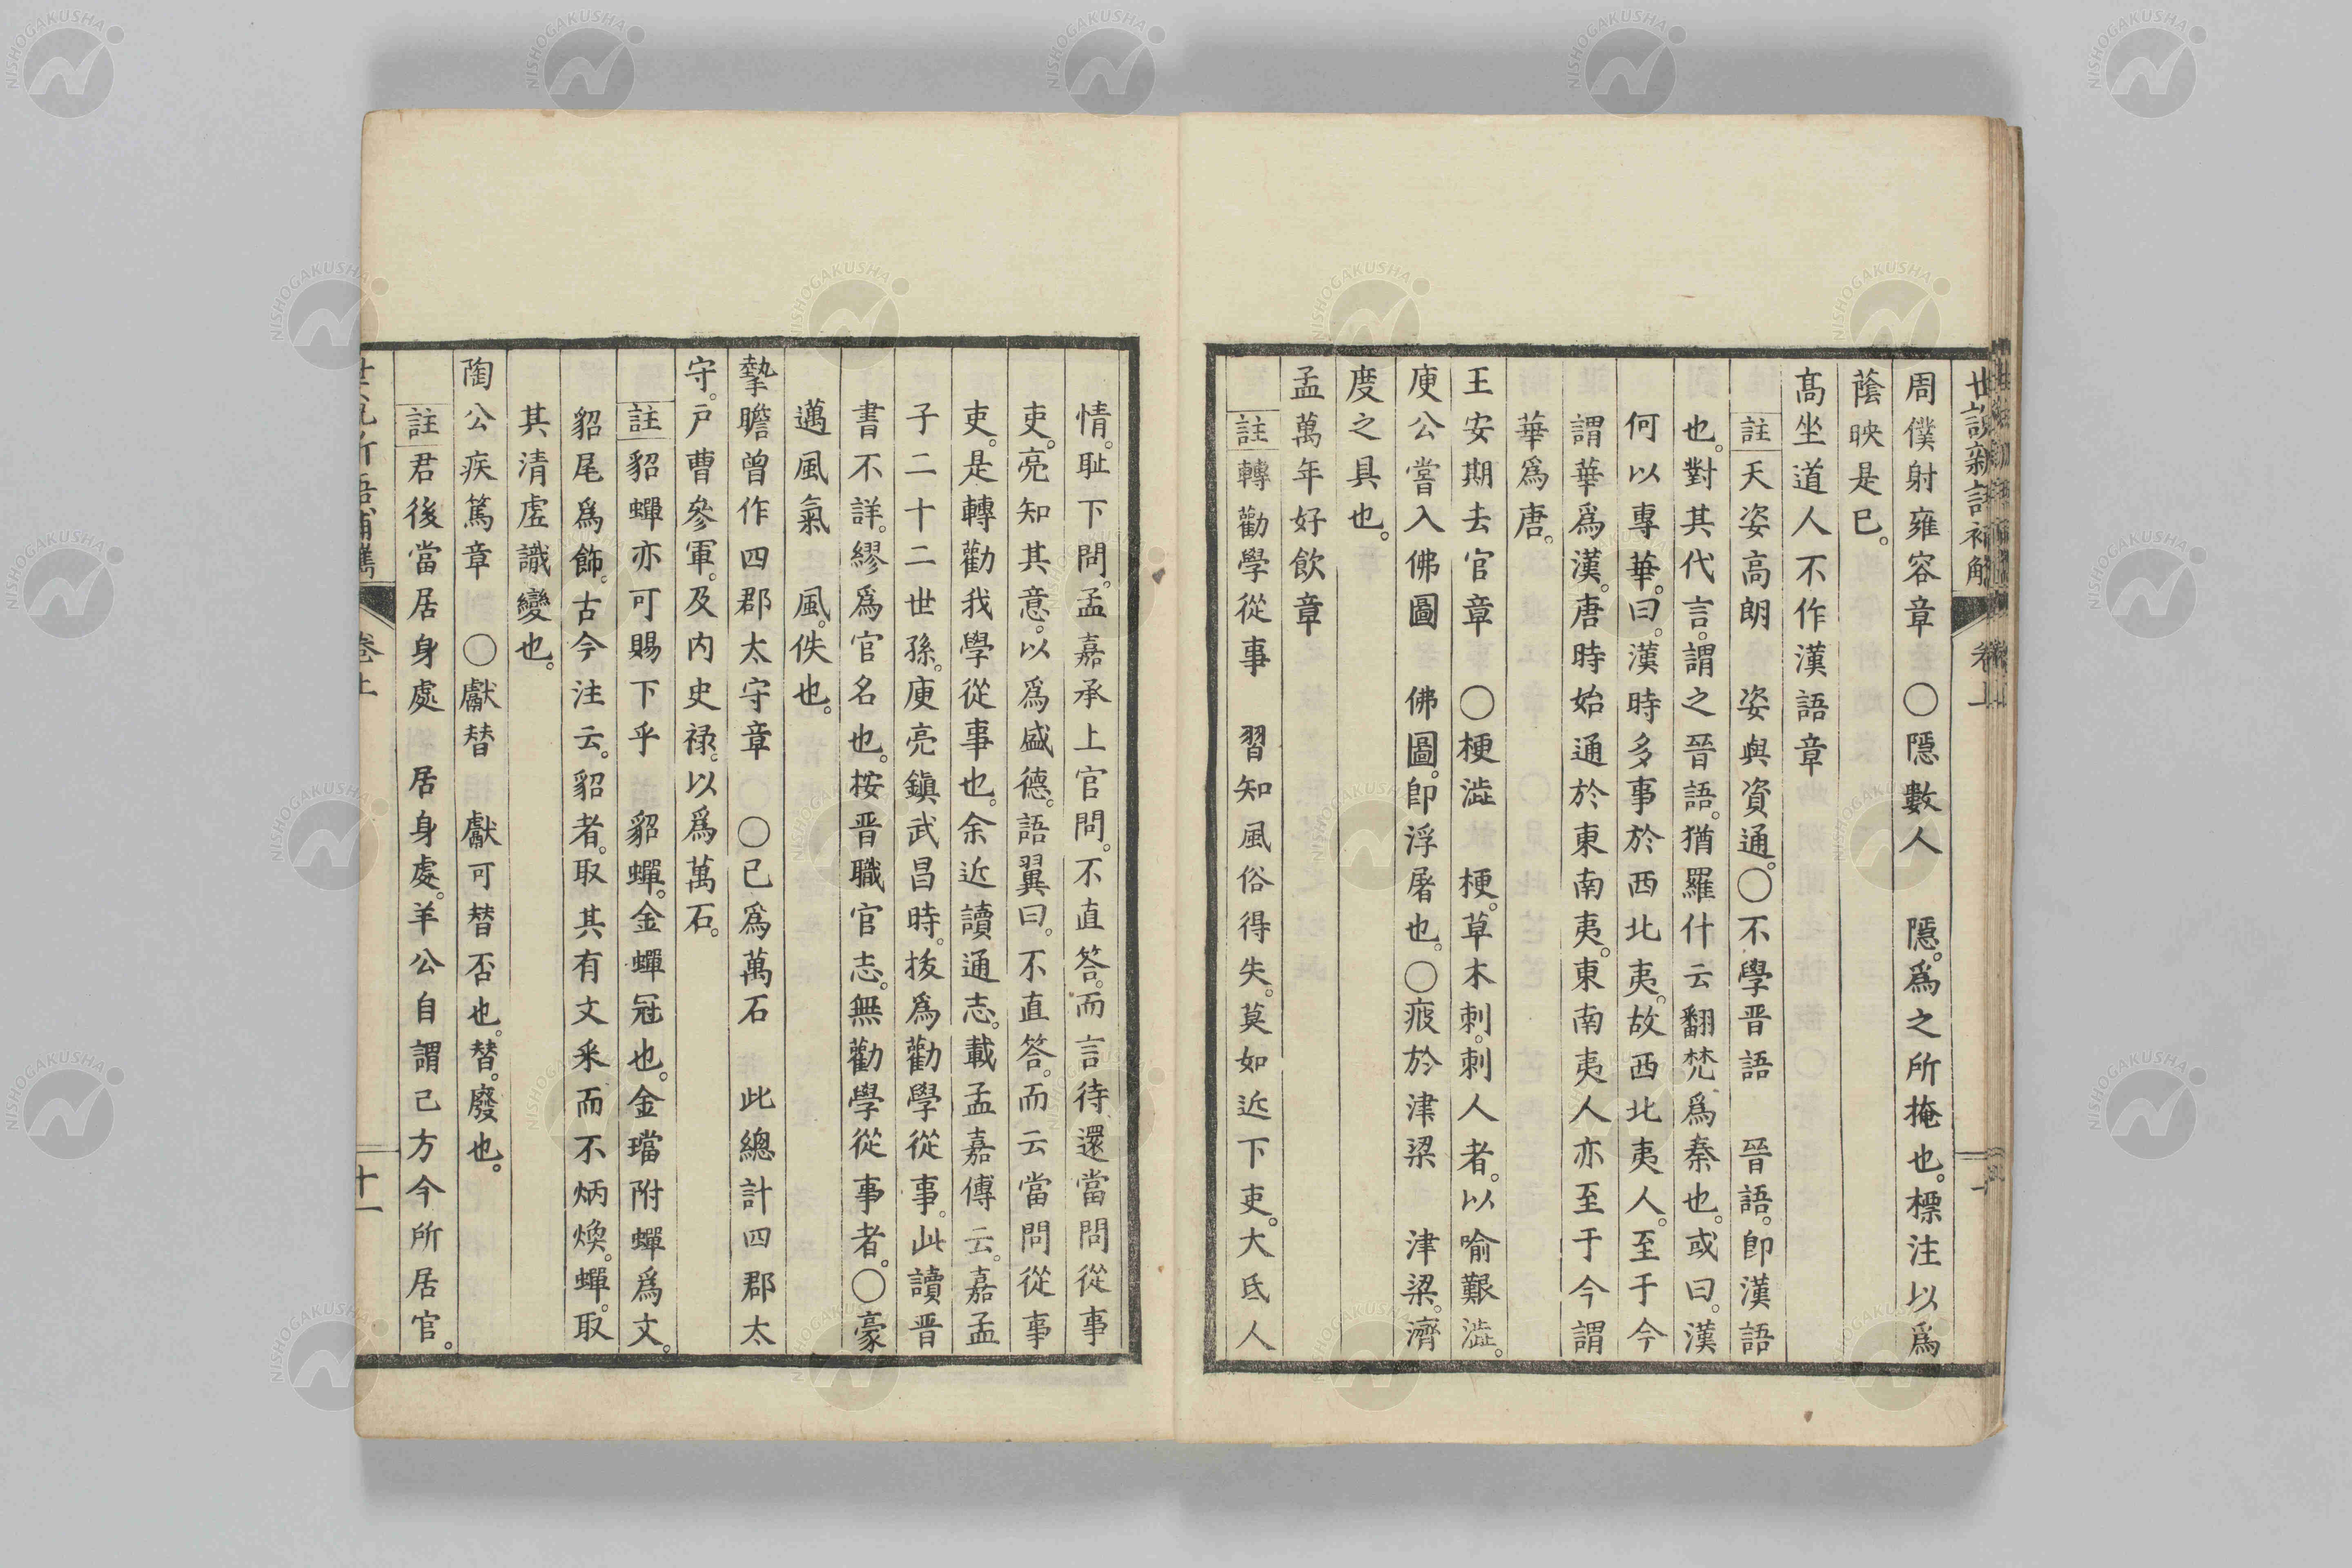 周僕射雍容章　○隱數人　隱。爲之所掩也。標注以爲
蔭映是已。
高坐道人不作漢語章
註天姿高朗　姿與資通。○不學晋語　晉語。卽漢語
也。對其代言。謂之晉語。猶羅什云翻梵爲秦也。或曰。漢
何以專華。曰。漢時多事於西北夷。故西北夷人。至于今
謂華爲漢。唐時始通於東南夷。東南夷人亦至于今謂
華爲唐。
王安期去官章　○梗澁　梗。草木刺。刺人者。以喻艱澁。
庾公嘗入佛圖　佛圖。卽浮屠也。○疲於津梁　津梁。濟
度之具也。
孟萬年好飲章
註轉勸學從事　習知風俗得失。莫如近下吏。大氐人
情。耻下問。孟嘉承上官問。不直答。而言待還當問從事
吏。亮知其意。以爲盛德。語翼曰。不直答。而云當問從事
吏。是轉勸我學從事也。余近讀通志。載孟嘉傳云。嘉孟
子二十二世孫。庾亮鎭武昌時。拔爲勸學從事。此讀晋
書不詳。繆爲官名也。桉晋職官志。無勸學從事者。○豪
邁風氣　風。佚也。
摯瞻曾作四郡太守章　○已爲萬石　此總計四郡太
守。戶曹參軍。及內史祿。以爲萬石。
註貂蟬亦可賜下乎　貂蟬。金蟬冠也。金璫附蟬爲文。
貂尾爲飾。古今注云。貂者。取其有文釆而不炳煥。蟬。取
其清虛識變也。
陶公疾篤章　○獻替　獻可替否也。替。廢也。
註君後當居身處　居身處。羊公自謂己方今所居官。
卷上
十一